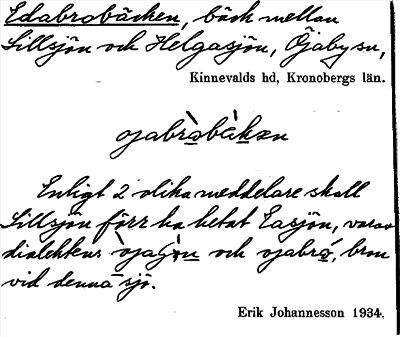 Edabrobäcken, bäck mellan
Lillsjön och Helgasjön, Öjaby sn,
Kinnevalds hd, Kronobergs län.
ojabròbä̀kən
Enligt 2 olika meddelare skall
Lillsjön förr ha hetat Easjön, varav
dialektens och ojabró, bron
vid denna sjö.
Erik Johannesson 1934.